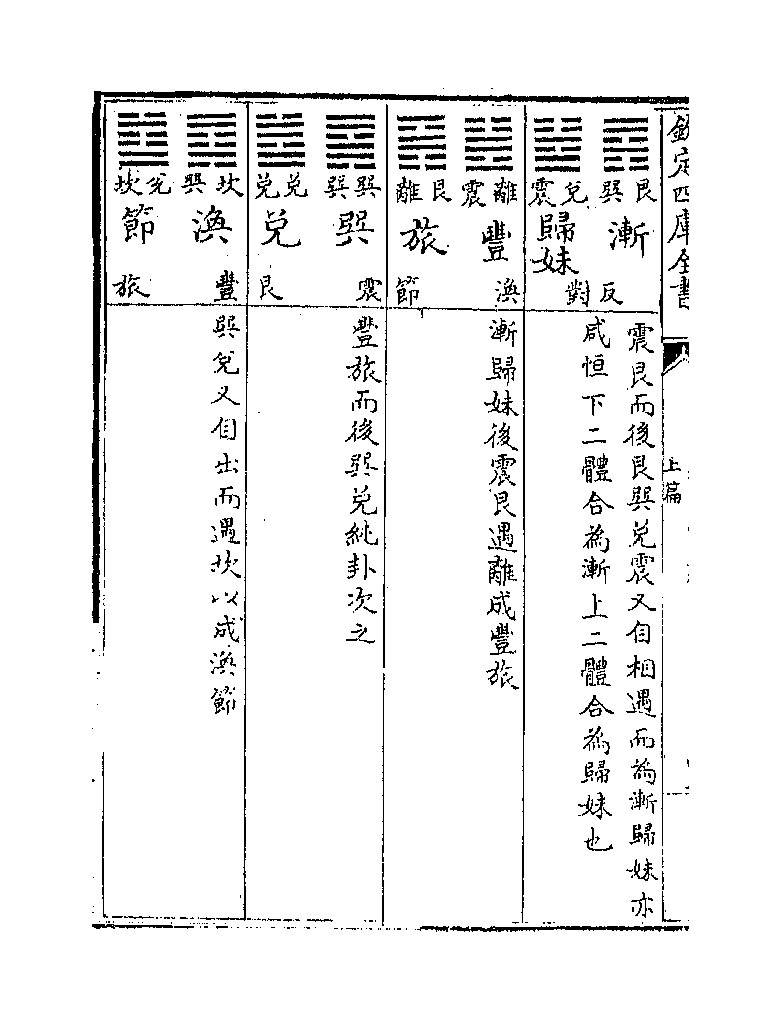 欽定四庫全書
上篇
艮巽
漸
反
兌震
歸妹
對
震艮而後艮巽兌震又自相遇而為漸歸妹亦
咸恒下二體合為漸上二體合為歸妹也
離震
豐
渙
艮離
旅
節
漸歸妹後震艮遇離成豐旅
巽巽
巽
震
兌兌
兌
艮
豐旅而後巽兌純卦次之
坎巽
渙
豐
兌坎
節
旅
巽兌又自出而遇坎以成渙節